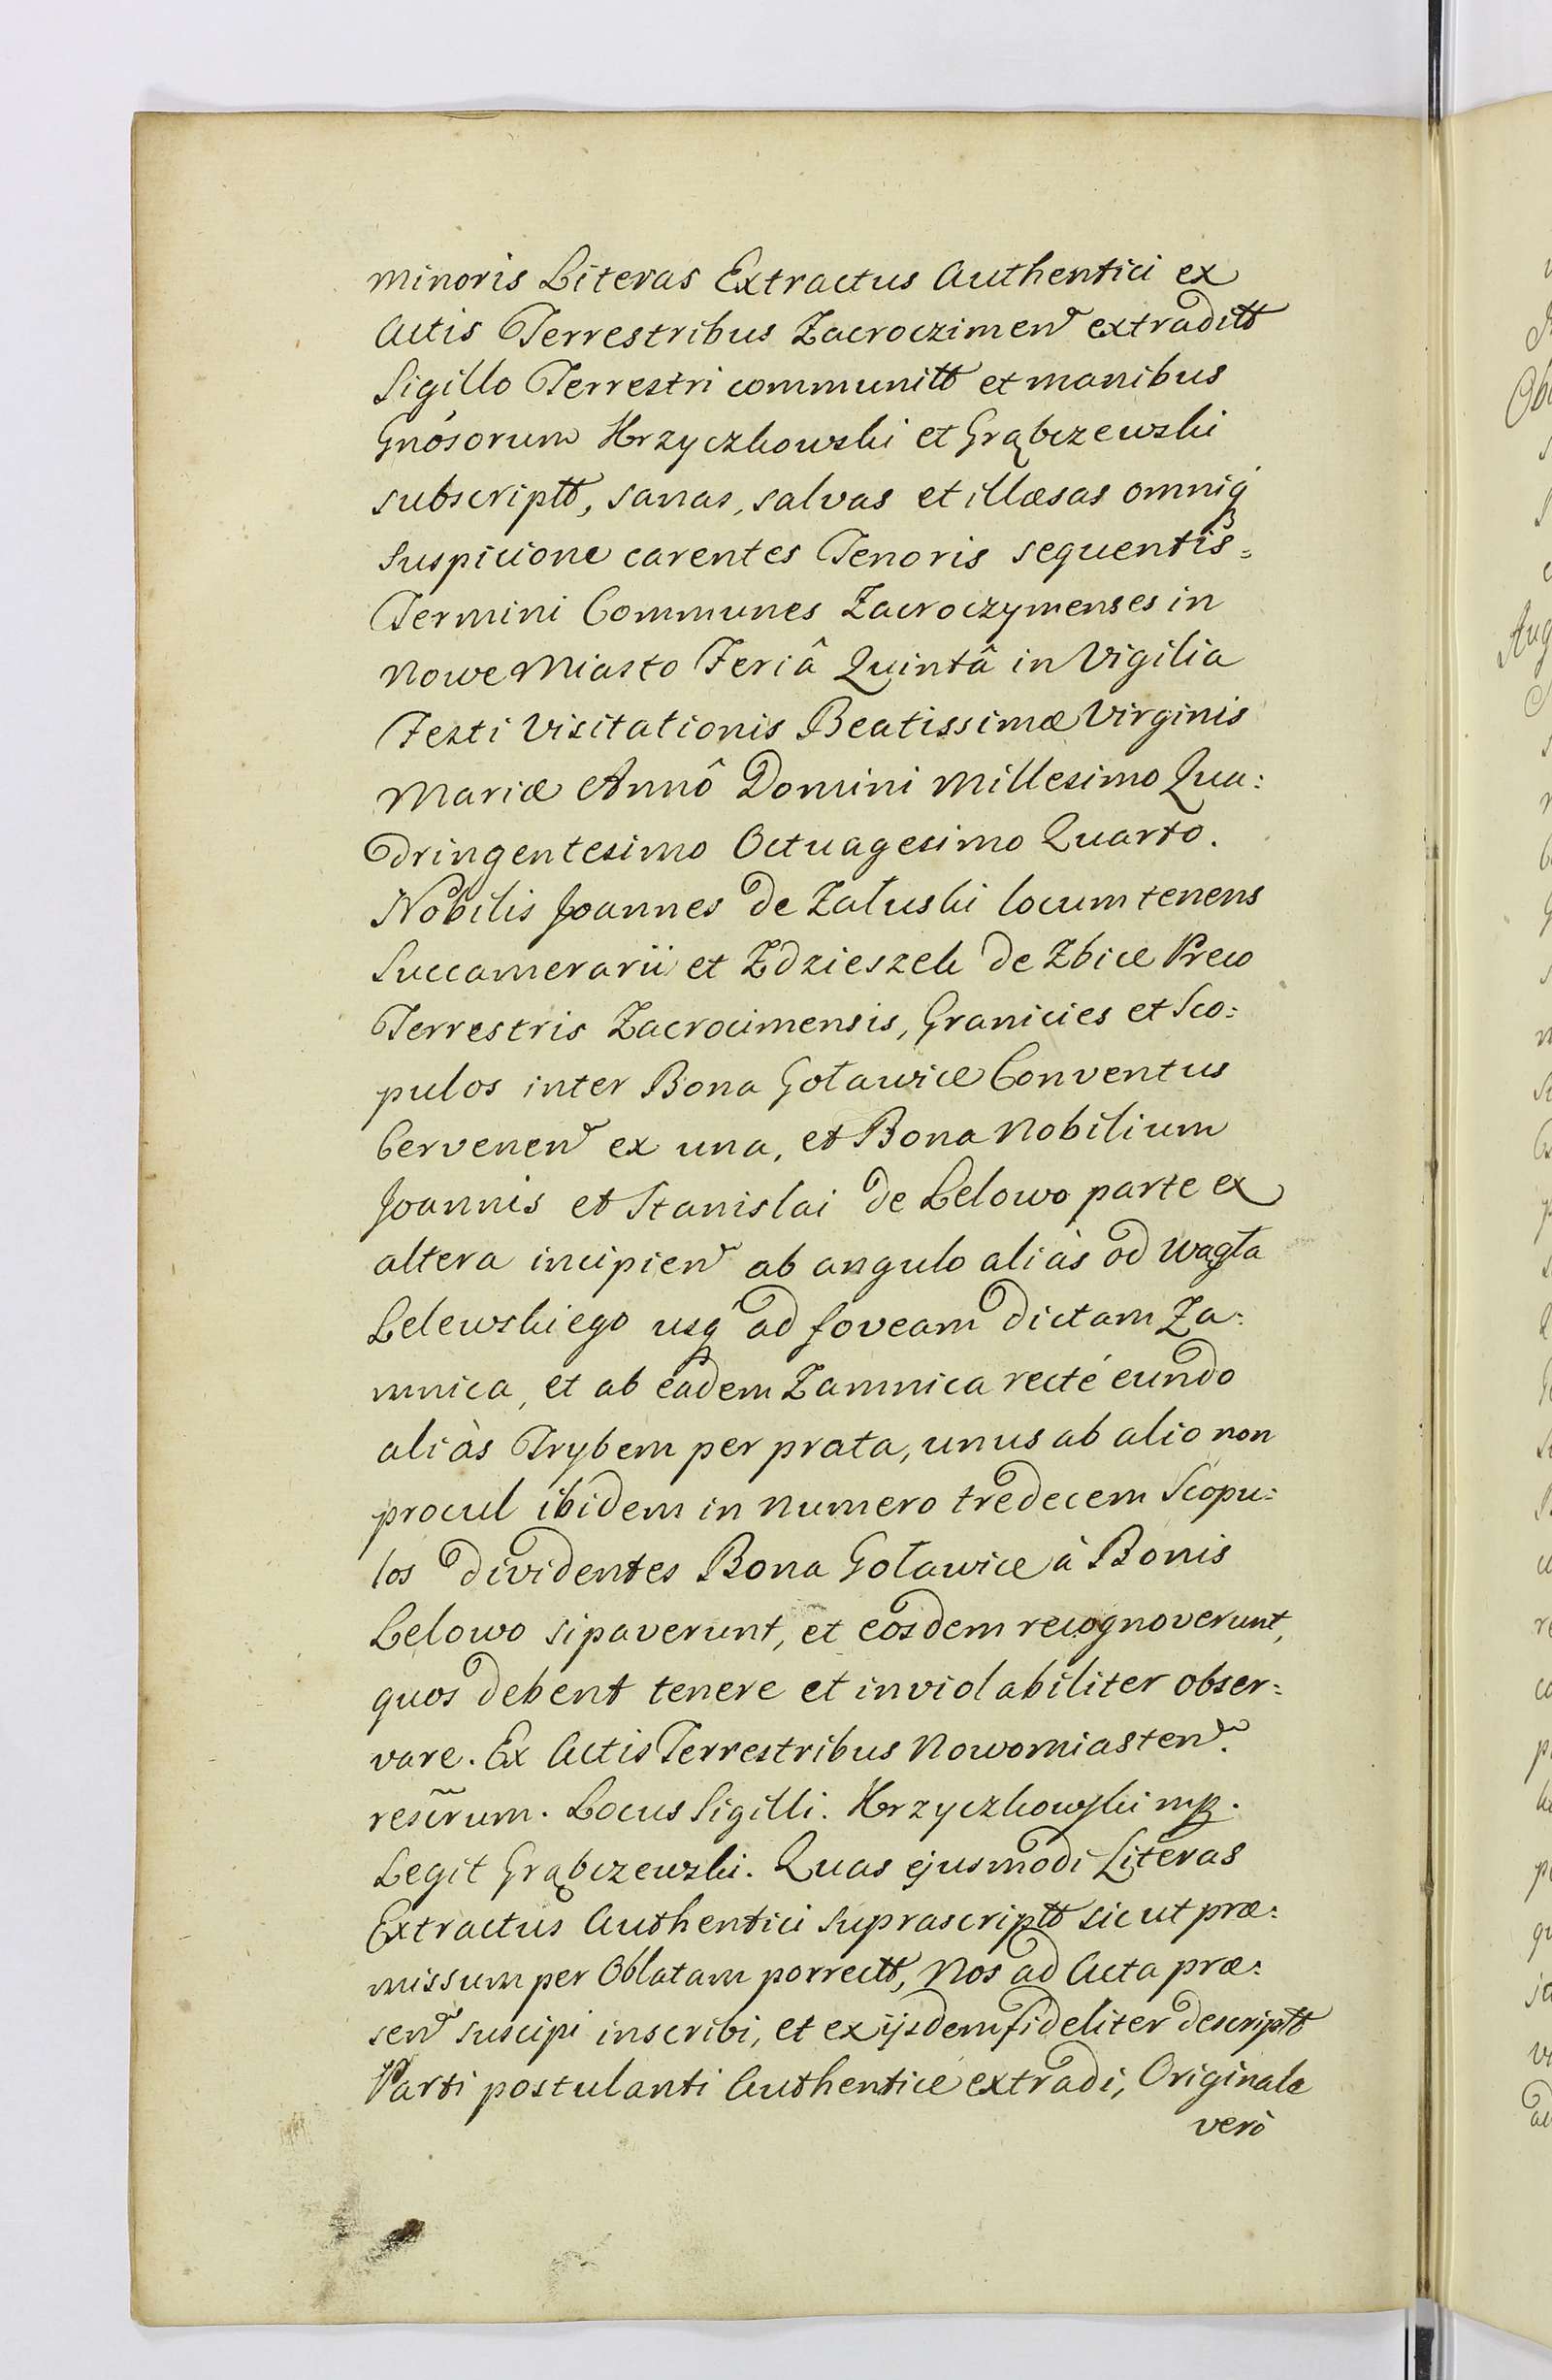 minoris Literas Extractus Authentici ex
Actis Terrestribus Zacroczimen extraditt
Sigillo Terrestri communitt et manibus
Gnosorum Krzyczkowski et Grąbczewski
subscriptt, sanas, salvas et illæsas omniq́
suspicione carentes Tenoris sequentis =
Termini Communes Zacroczymenses in
Nowe Miasto Feriâ Quintâ in Vigilia
Festi Visitationis Beatissimæ Virginis
Mariæ Annô Domini Millesimo Qua:
dringentesimo Octuagesimo Quarto.
Nobilis Joannes de Załuski locum tenens
Succamerarii et Zdzieszek de Zbice Preco
Terrestris Zacrocimensis, Granicies et Sco:
pulos inter Bona Goławice Conventus
Cervenen ex una, et Bona Nobilium
Joannis et Stanislai de Lelowo parte ex
altera incipien ab angulo aliàs od Wągła
Lelewskiego usq́ ad foveam dictam Za:
mnica, et ab eadem Zamnica recté eundo
aliàs Trybem per prata, unus ab alio non
procul ibidem in numero tredecem Scopu:
los dividentes Bona Goławice à Bonis
Lelowo sipaverunt, et eosdem recognoverunt,
quos debent tenere et inviolabiliter obser:
vare. Ex Actis Terrestribus Nowomiasten.
rescr̃um. Locus Sigilli. Krzyczkowski mp.
Legit Grąbczewski. Quas ejusmodi Literas
Extractus Authentici suprascriptt sicut præ:
missum per Oblatam porrectt, Nos ad Acta præ:
sen suscipi inscribi, et ex ijsdem fideliter descriptt
Parti postulanti Authenticé extradi, Originale
verò